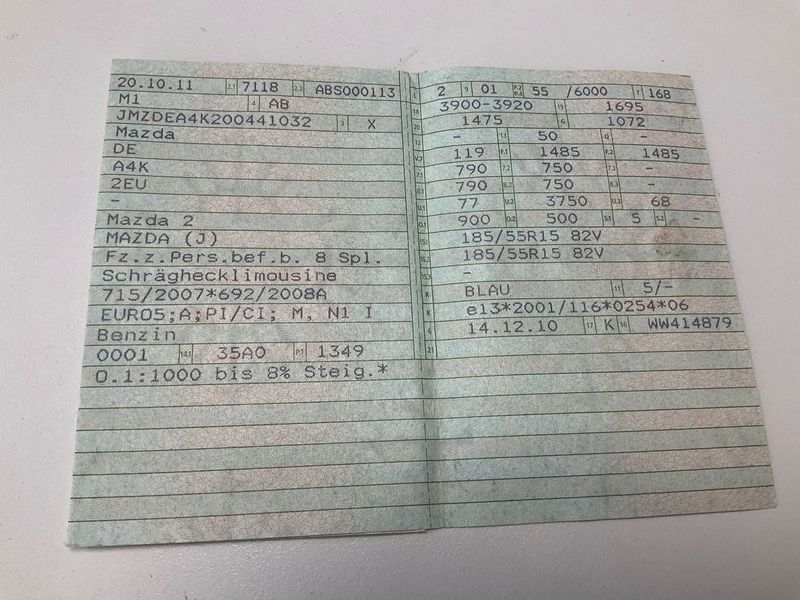 20.10.11 2.1 7118 2.2 ABS000113
M1 4 AB
JMZDEA4K200441032 3 X
Mazda
DE
A4K
2EU
-
Mazda 2
MAZDA (J)
Fz.z.Pers.bef.b. 8 Spl.
Schräghecklimousine
715/2007*692/2008A
EURO5;A;PI/CI; M, N1 I
Benzin
0001 14.1 35A0 P.1 1349
O.1:1000 bis 8% Steig.*
L 2 9 01 P.2 P.4 55 /6000 T 168
18 3900-3920 19 1695
20 1475 G 1072
12 - 13 50 Q -
V.7 119 F.1 1485 F.2 1485
7.1 790 7.2 750 7.3 -
8.1 790 8.2 750 8.3 -
U.1 77 U.2 3750 U.3 68
O.1 900 O.2 500 S.1 5 S.2 -
15.1 185/55R15 82V
15.2 185/55R15 82V
15.3 -
R BLAU 11 5/-
K e13*2001/116*0254*06
6 14.12.10 17 K 16 WW414879
21